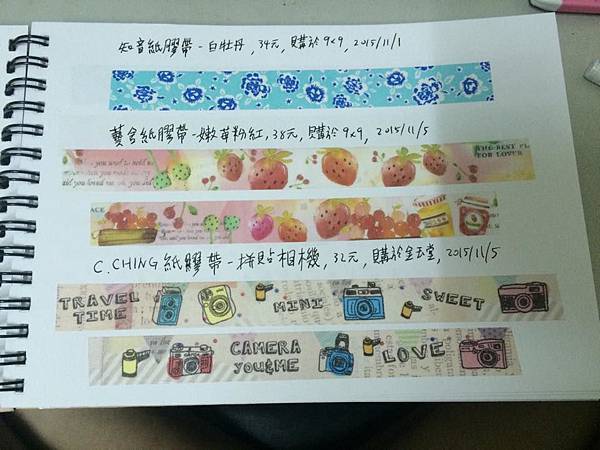 知音紙膠帶-白牡丹,34元,購於9x9,2015/11/1
藝舍紙膠帶-嫩莓粉紅,38元,購於9x9,2015/11/5
THE BEST
FOR LOVER
C.CHING紙膠帶-拼貼相機,32元,購於金玉堂,2015/11/5
TRAVEL TIME MINI SWEET
CAMERA you&ME LOVE